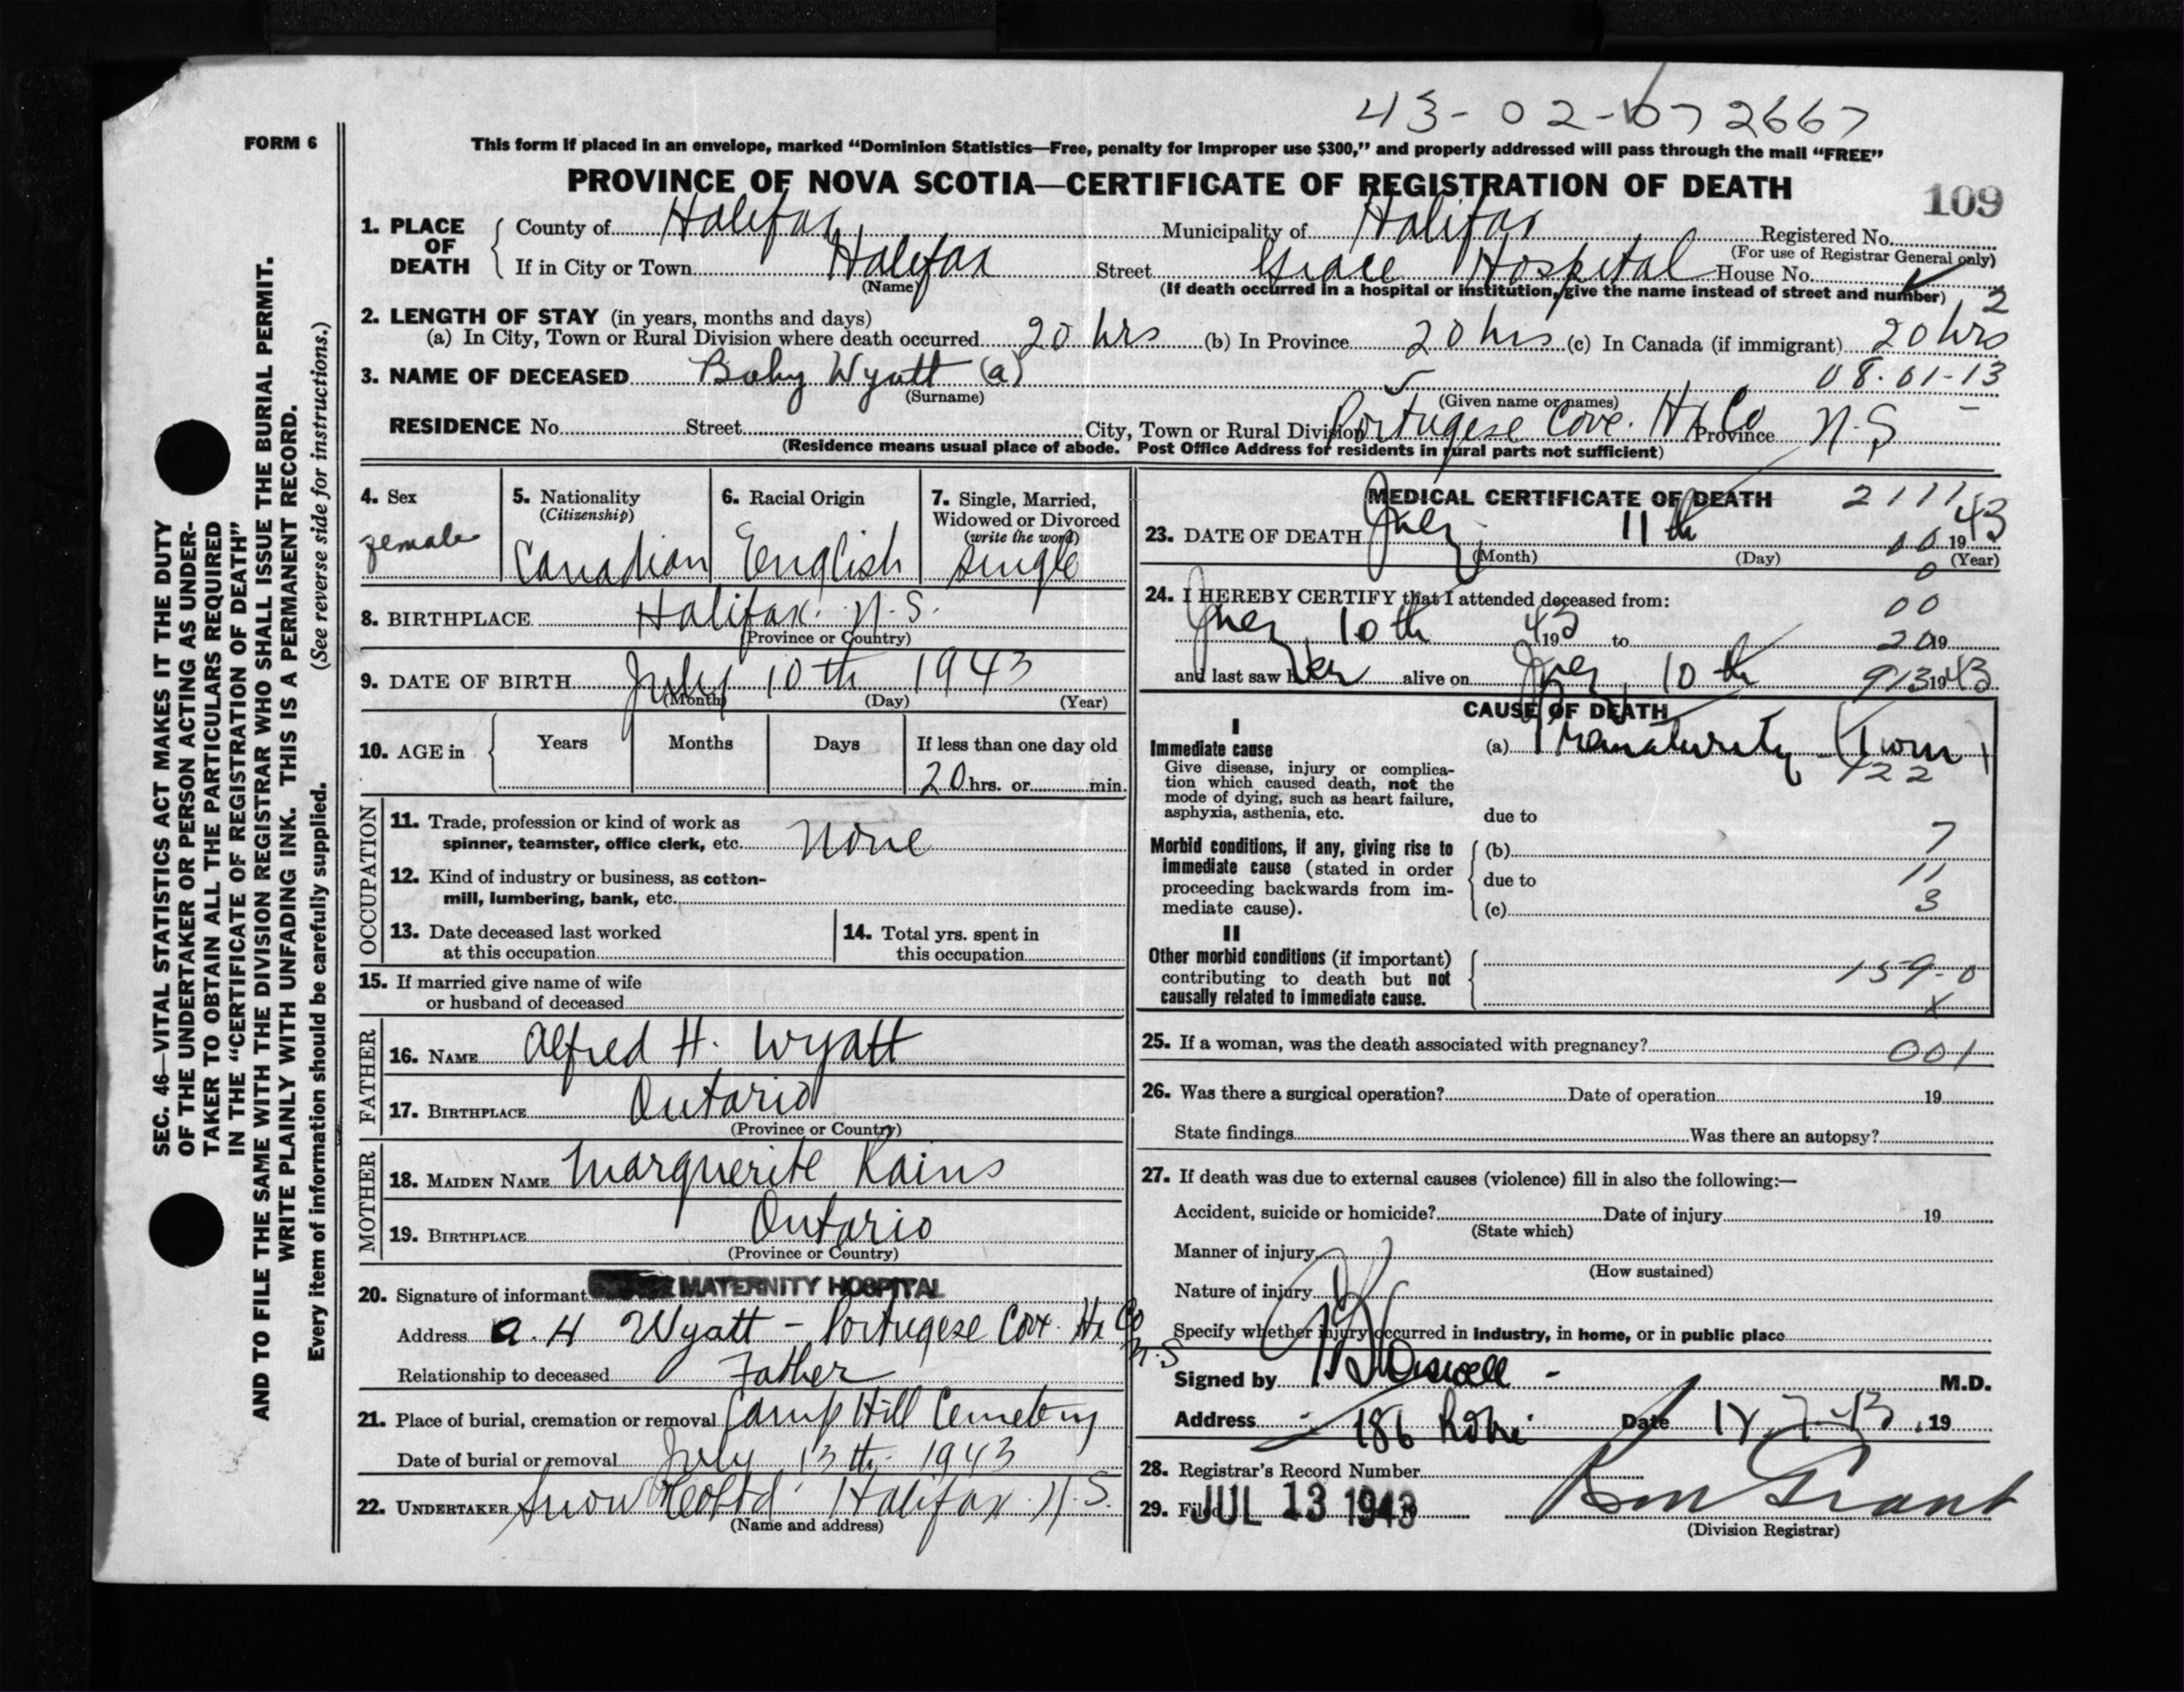 43-02-07 2667
FORM 6
This form if placed in an envelope, marked “Dominion Statistics—Free, penalty for improper use $300,” and properly addressed will pass through the mail “FREE”
PROVINCE OF NOVA SCOTIA—CERTIFICATE OF REGISTRATION OF DEATH
109
1. PLACE OF DEATH
County of Halifax Municipality of Halifax Registered No.
(For use of Registrar General only)
If in City or Town Halifax Street Grace Hospital House No.
(Name) (If death occurred in a hospital or institution, give the name instead of street and number) 2
2. LENGTH OF STAY (in years, months and days)
(a) In City, Town or Rural Division where death occurred 20 hrs (b) In Province 20 hrs (c) In Canada (if immigrant) 20 hrs
3. NAME OF DECEASED Baby Wyatt (a) 08-01-13
(Surname) (Given name or names)
RESIDENCE No. Street City, Town or Rural Division Portugese Cove. Hx Co Province N.S
(Residence means usual place of abode. Post Office Address for residents in rural parts not sufficient)
4. Sex female
5. Nationality (Citizenship) Canadian
6. Racial Origin English
7. Single, Married, Widowed or Divorced (write the word) single
8. BIRTHPLACE Halifax. N.S.
(Province or Country)
9. DATE OF BIRTH July 10th 1943
(Month) (Day) (Year)
10. AGE in Years Months Days If less than one day old
20 hrs. or min.
OCCUPATION
11. Trade, profession or kind of work as
spinner, teamster, office clerk, etc. None
12. Kind of industry or business, as cotton-
mill, lumbering, bank, etc.
13. Date deceased last worked
at this occupation
14. Total yrs. spent in
this occupation
15. If married give name of wife
or husband of deceased
FATHER
16. NAME Alfred H. Wyatt
17. BIRTHPLACE Ontario
(Province or Country)
MOTHER
18. MAIDEN NAME Marguerite Rains
19. BIRTHPLACE Ontario
(Province or Country)
20. Signature of informant MATERNITY HOSPITAL
Address A. H Wyatt - Portugese Cove Hx Co N.S
Relationship to deceased Father
21. Place of burial, cremation or removal Camp Hill Cemetery
Date of burial or removal July 13th 1943
22. UNDERTAKER Snow & Co Ltd Halifax N.S.
(Name and address)
MEDICAL CERTIFICATE OF DEATH 2111
23. DATE OF DEATH July 11th 1943
(Month) (Day) (Year)
24. I HEREBY CERTIFY that I attended deceased from: 00
July 10th 1943 to 20 19
and last saw her alive on July 10th 913 1943
CAUSE OF DEATH
I
Immediate cause
Give disease, injury or complica-
tion which caused death, not the
mode of dying, such as heart failure,
asphyxia, asthenia, etc.
(a) Prematurity (Twin)
22
due to
Morbid conditions, if any, giving rise to
immediate cause (stated in order
proceeding backwards from im-
mediate cause).
(b) 7
due to 11
(c) 3
II
Other morbid conditions (if important)
contributing to death but not
causally related to immediate cause.
159-0
x
25. If a woman, was the death associated with pregnancy? 001
26. Was there a surgical operation? Date of operation 19
State findings Was there an autopsy?
27. If death was due to external causes (violence) fill in also the following:—
Accident, suicide or homicide? Date of injury 19
(State which)
Manner of injury
(How sustained)
Nature of injury
Specify whether injury occurred in industry, in home, or in public place
Signed by M.D.
Address 186 Date 19
28. Registrar's Record Number
29. Filed JUL 13 1943 Grant
(Division Registrar)
SEC. 46—VITAL STATISTICS ACT MAKES IT THE DUTY
OF THE UNDERTAKER OR PERSON ACTING AS UNDER-
TAKER TO OBTAIN ALL THE PARTICULARS REQUIRED
IN THE “CERTIFICATE OF REGISTRATION OF DEATH”
AND TO FILE THE SAME WITH THE DIVISION REGISTRAR WHO SHALL ISSUE THE BURIAL PERMIT.
WRITE PLAINLY WITH UNFADING INK. THIS IS A PERMANENT RECORD.
Every item of information should be carefully supplied. (See reverse side for instructions.)